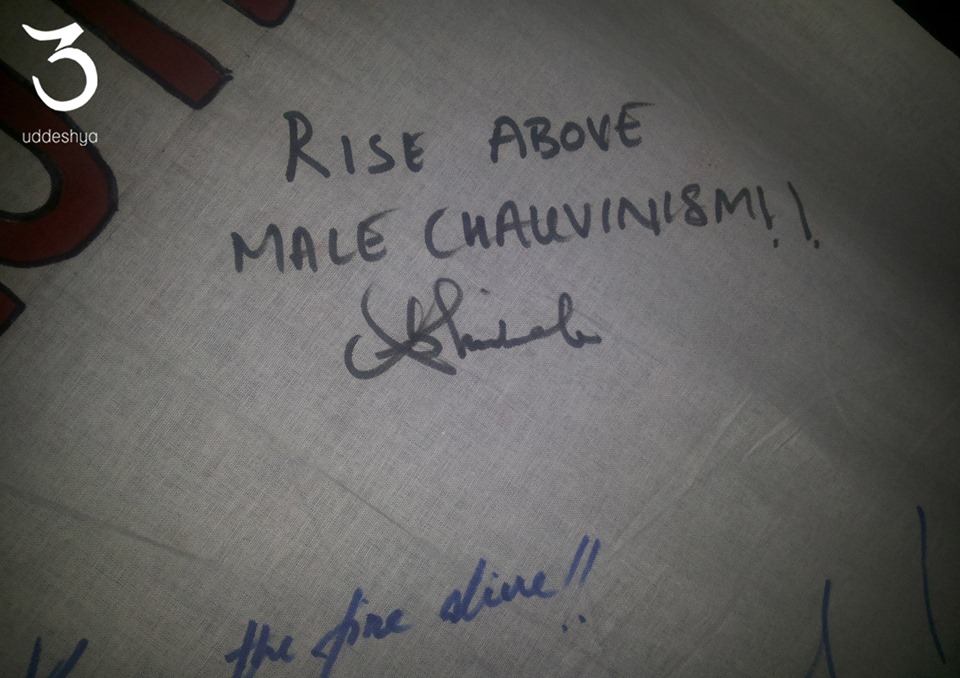 uddeshya
RISE ABOVE
MALE CHAUVINISM!!
the fire alive!!